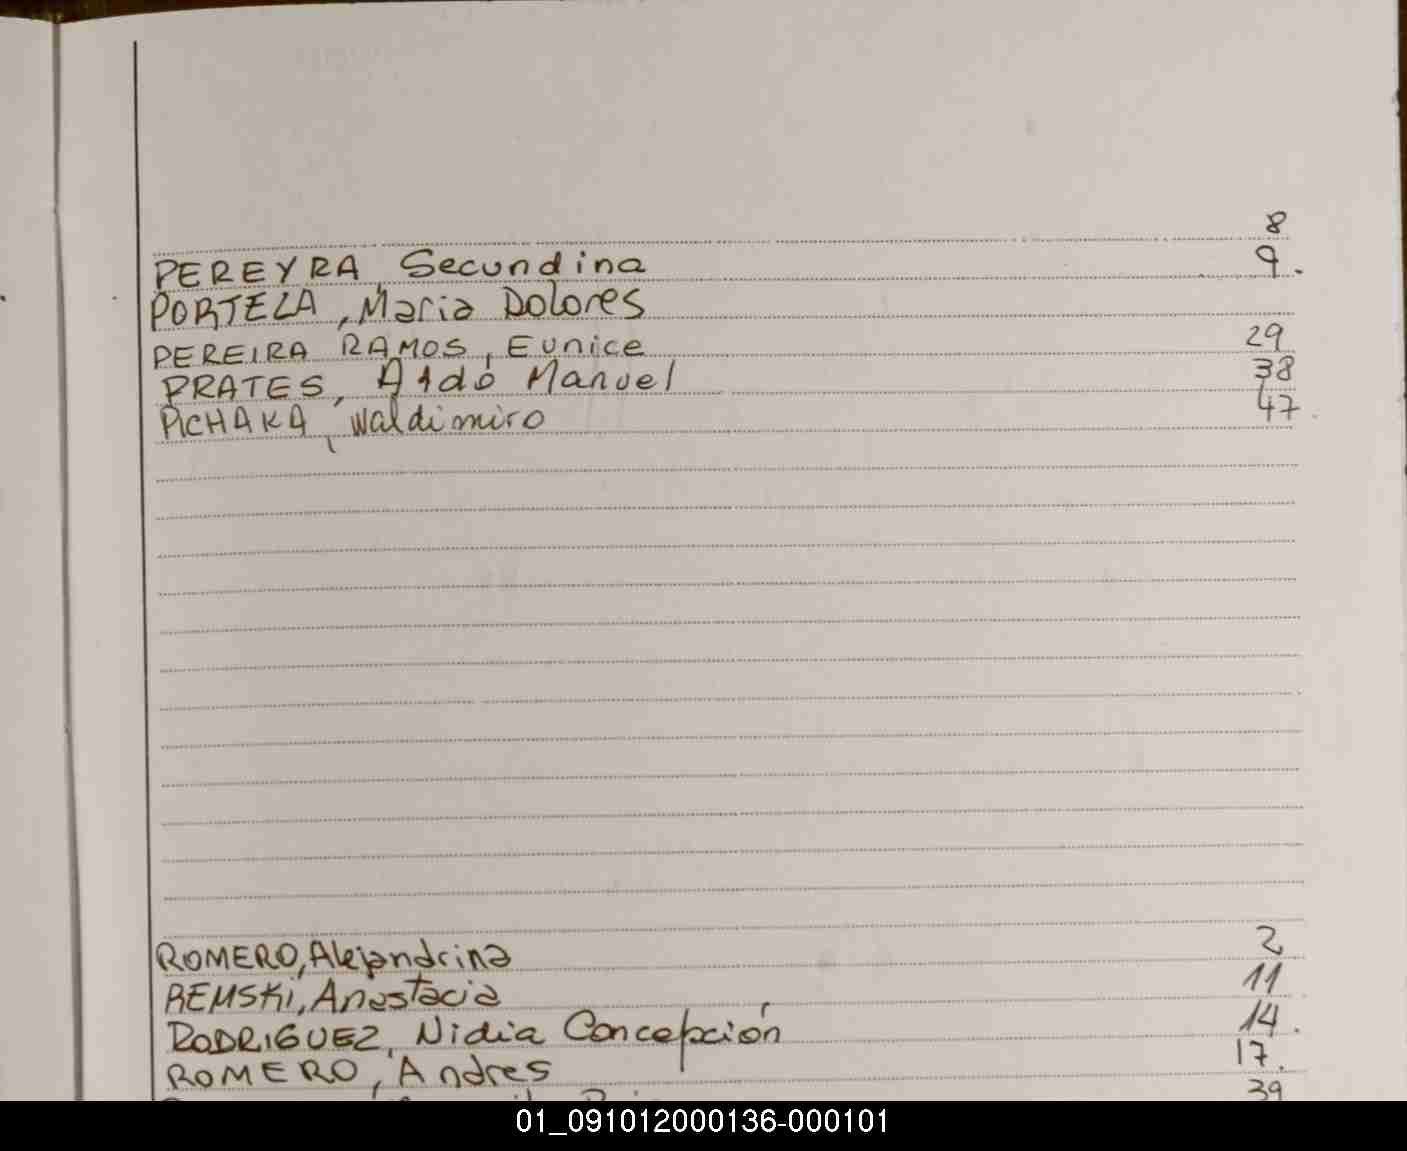 8
PEREYRA, Secundina 9.
PORTELA, Maria Dolores
PEREIRA RAMOS, Eunice 29
PRATES, Aldo Manuel 38
PICHAKA, Waldimiro 47
ROMERO, Alejandrina 2
REMSKI, Anastacia 11
RODRIGUEZ, Nidia Concepción 14.
ROMERO, Andres 17.
39
01_091012000136-000101